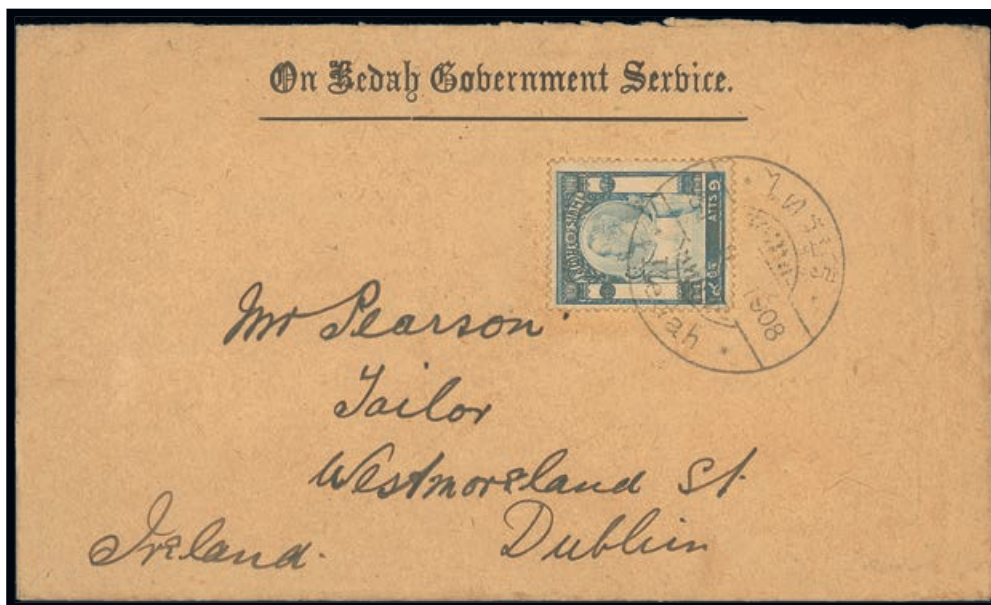 On Kedah Government Service.
ATTS 9
1908
Mr Pearson
Tailor
Westmoreland St.
Dublin
Ireland.